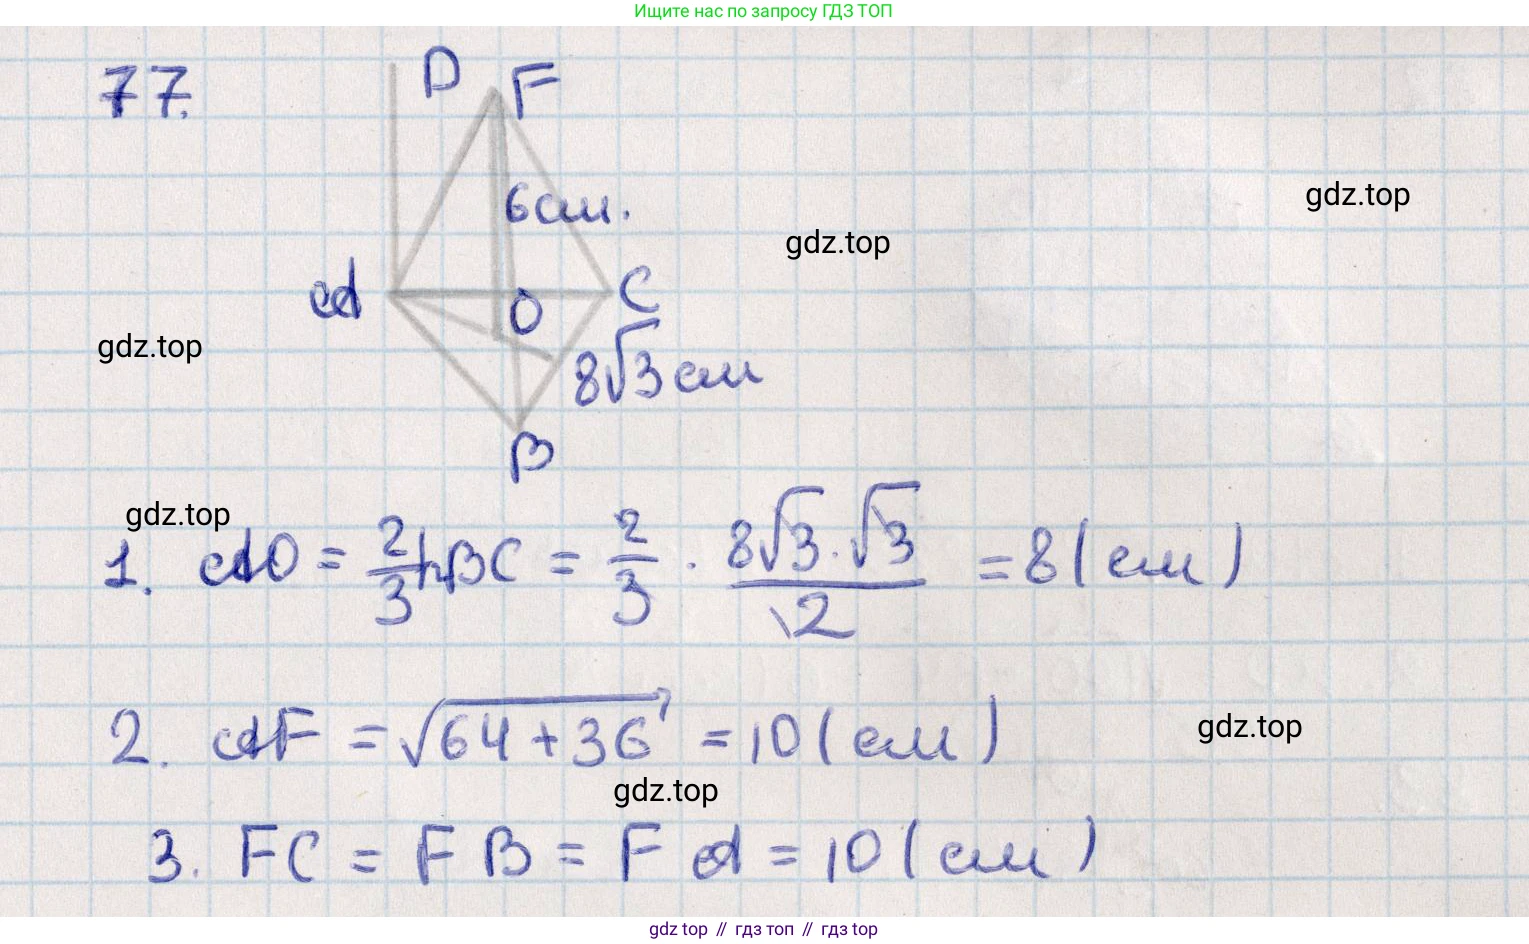 Ищите нас по запросу ГДЗ ТОП
77.
D
F
6 см.
gdz.top
gdz.top
A
O
C
8√3 см
gdz.top
B
gdz.top
1. AO = 2/3 hBC = 2/3 · (8√3 · √3)/2 = 8 (см)
2. AF = √(64+36) = 10 (см)
gdz.top
gdz.top
3. FC = FB = FA = 10 (см)
gdz.top // гдз топ // гдз top